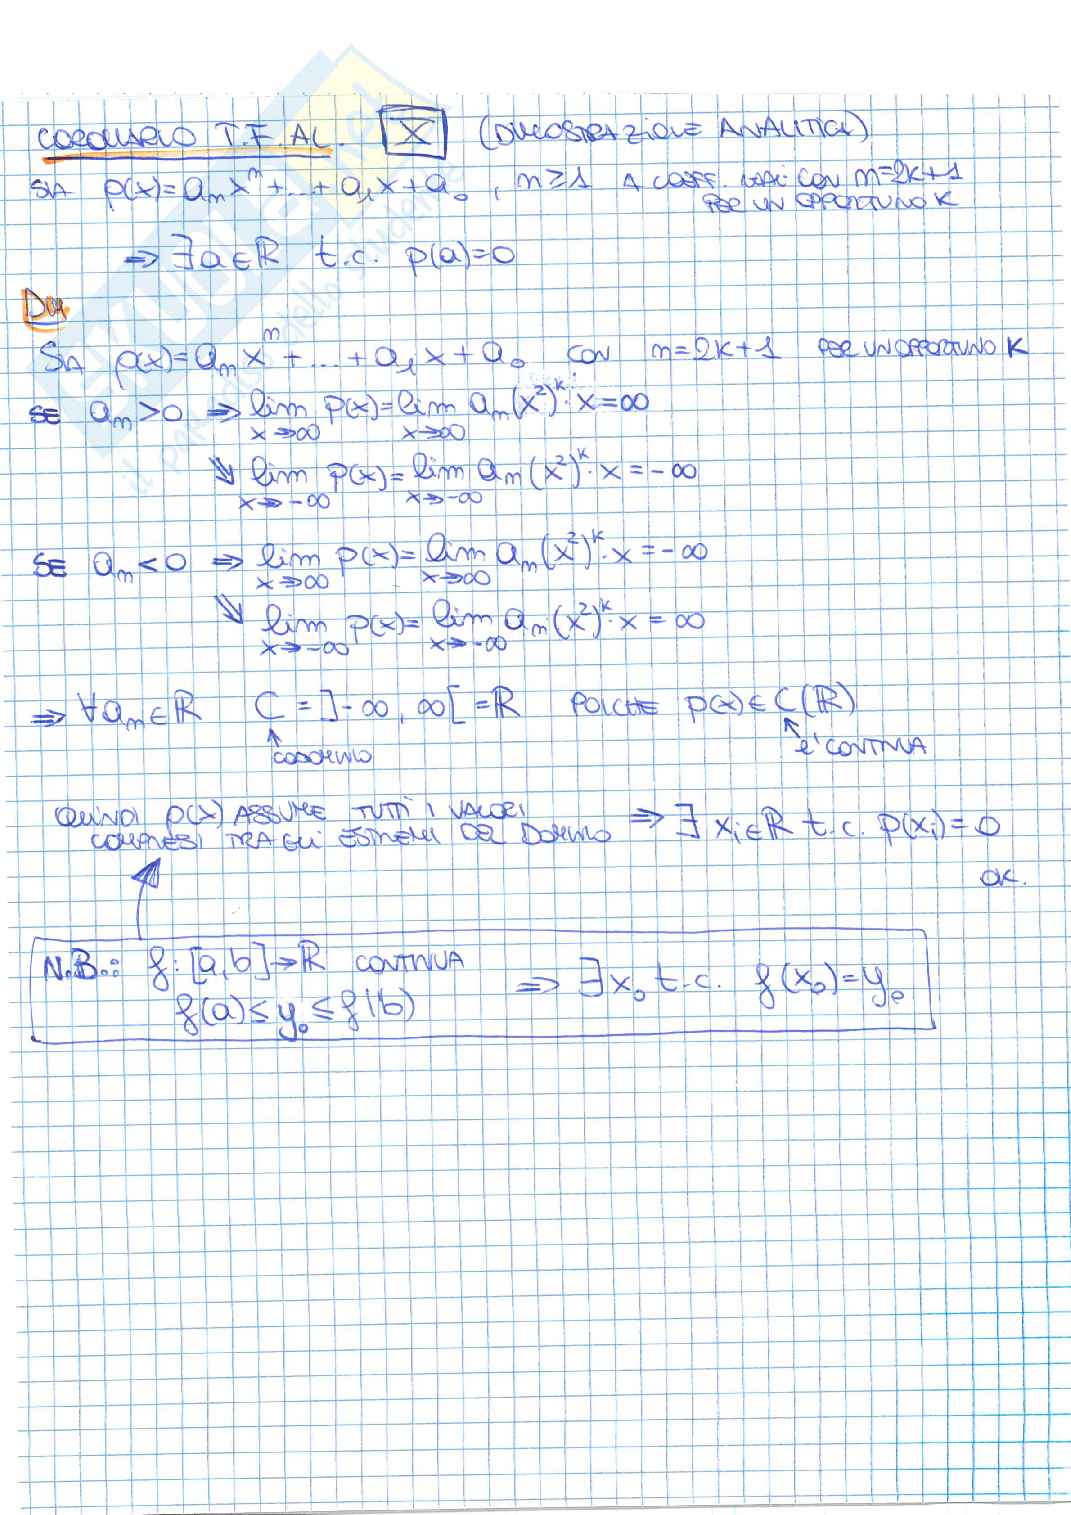 COROLLARIO T.F.AL. X (DIMOSTRAZIONE ANALITICA)
SIA p(x)=aₙxⁿ+...+a₁x+a₀, n≥1 A COEFF. REALI CON n=2K+1
PER UN OPPORTUNO K
⇒ ∃a∈ℝ t.c. p(a)=0
DIM
SIA p(x)=aₙxⁿ+...+a₁x+a₀ CON n=2K+1 PER UN OPPORTUNO K
SE aₙ>0 ⇒ lim p(x)=lim aₙ(x²)ᵏ·x=∞
x→∞ x→∞
⇘ lim p(x)=lim aₙ(x²)ᵏ·x=-∞
x→-∞ x→-∞
SE aₙ<0 ⇒ lim p(x)=lim aₙ(x²)ᵏ·x=-∞
x→∞ x→∞
⇘ lim p(x)=lim aₙ(x²)ᵏ·x=∞
x→-∞ x→-∞
⇒ ∀aₙ∈ℝ C=]-∞,∞[=ℝ POICHÈ p(x)∈C(ℝ)
↑ CODOMINIO ↑ E' CONTINUA
QUINDI p(x) ASSUME TUTTI I VALORI
COMPRESI TRA GLI ESTREMI DEL DOMINIO ⇒ ∃xᵢ∈ℝ t.c. p(xᵢ)=0
OK.
N.B.: f:[a,b]→ℝ CONTINUA
f(a)≤y₀≤f(b) ⇒ ∃x₀ t.c. f(x₀)=y₀